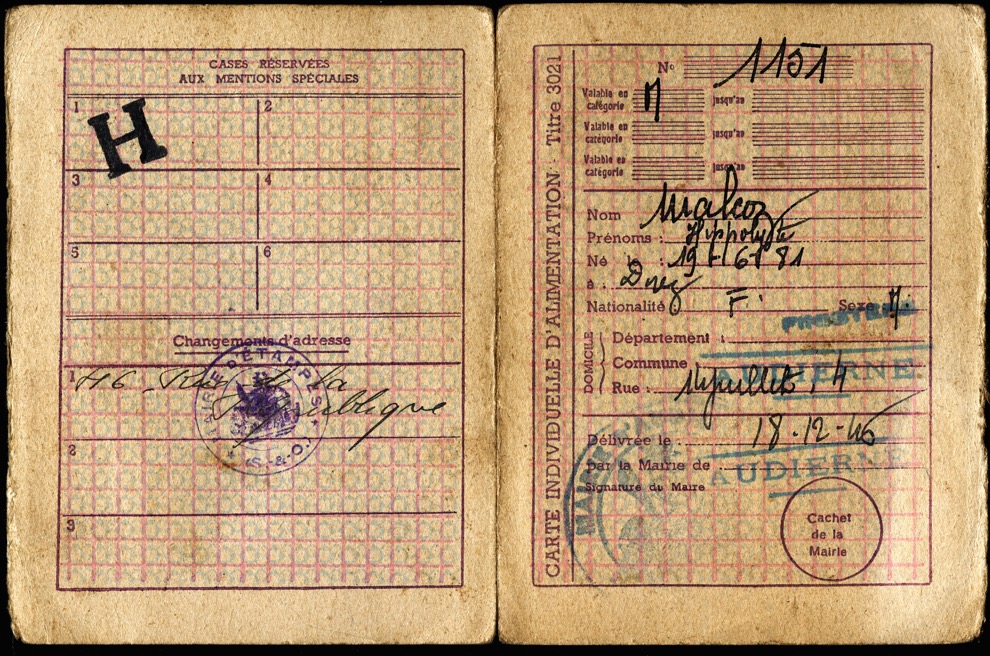 CASES RÉSERVÉES
AUX MENTIONS SPÉCIALES
1 H 2
3 4
5 6
Changements d'adresse
1 46 de la
République
MAIRIE D'ÉTAMPES
(S.-&-O.)
2
3
CARTE INDIVIDUELLE D'ALIMENTATION - Titre 3021
No 1151
Valable en catégorie M jusqu'au
Valable en catégorie jusqu'au
Valable en catégorie jusqu'au
Nom Malcoz
Prénoms : Hippolyte
Né le : 19-6-81
à :
Nationalité : F. Sexe M.
FINISTÈRE
DOMICILE
Département :
Commune AUDIERNE
Rue : 14 juillet, 4
Délivrée le : 18-12-46
par la Mairie de AUDIERNE
Signature du Maire
Cachet
de la
Mairie